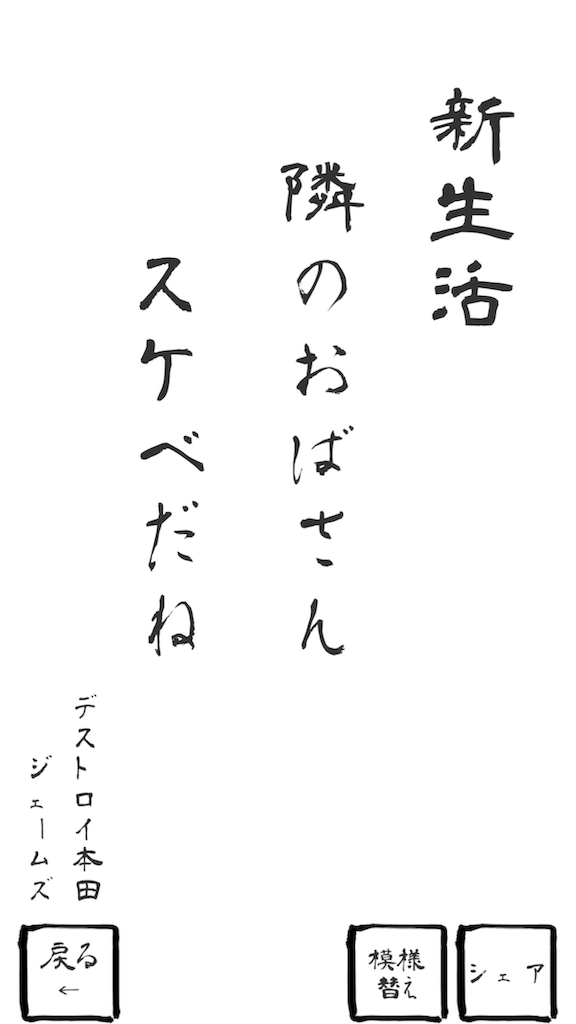 新生活
隣のおばさん
スケベだね
デストロイ本田
ジェームズ
戻る
←
模様
替え
シェア